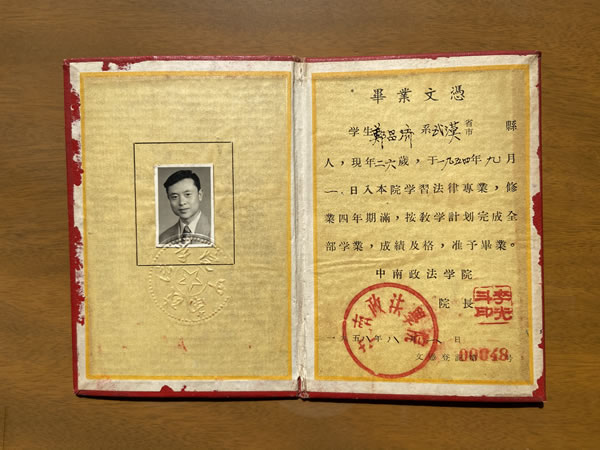 畢業文憑
学生鄭昌濟系武漢省市縣
人，現年二六歲，于一九五四年九月
一日入本院学習法律專業，修
業四年期滿，按教学計划完成全
部学業，成績及格，准予畢業。
中南政法学院
院長
李光斗印
中南政法學院
一九五八年八月一八日
文憑登記第00048号